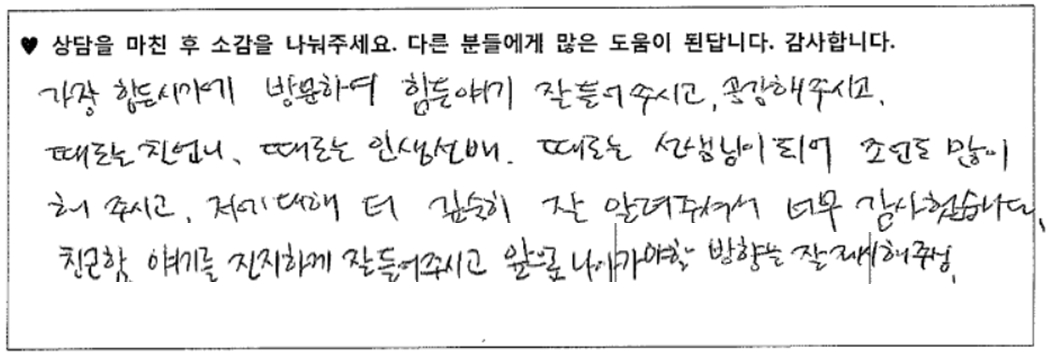 ♥ 상담을 마친 후 소감을 나눠주세요. 다른 분들에게 많은 도움이 된답니다. 감사합니다.
가장 힘든시기에 방문하여 힘든얘기 잘들어주시고, 공감해주시고,
때로는 친언니, 때로는 인생선배, 때로는 선생님이 되어 조언도 많이
해 주시고, 저에 대해 더 깊숙히 잘 알려주셔서 너무 감사했습니다.
친근함, 얘기를 진지하게 잘들어주시고 앞으로 나아가야할 방향는 잘 제시해주심.